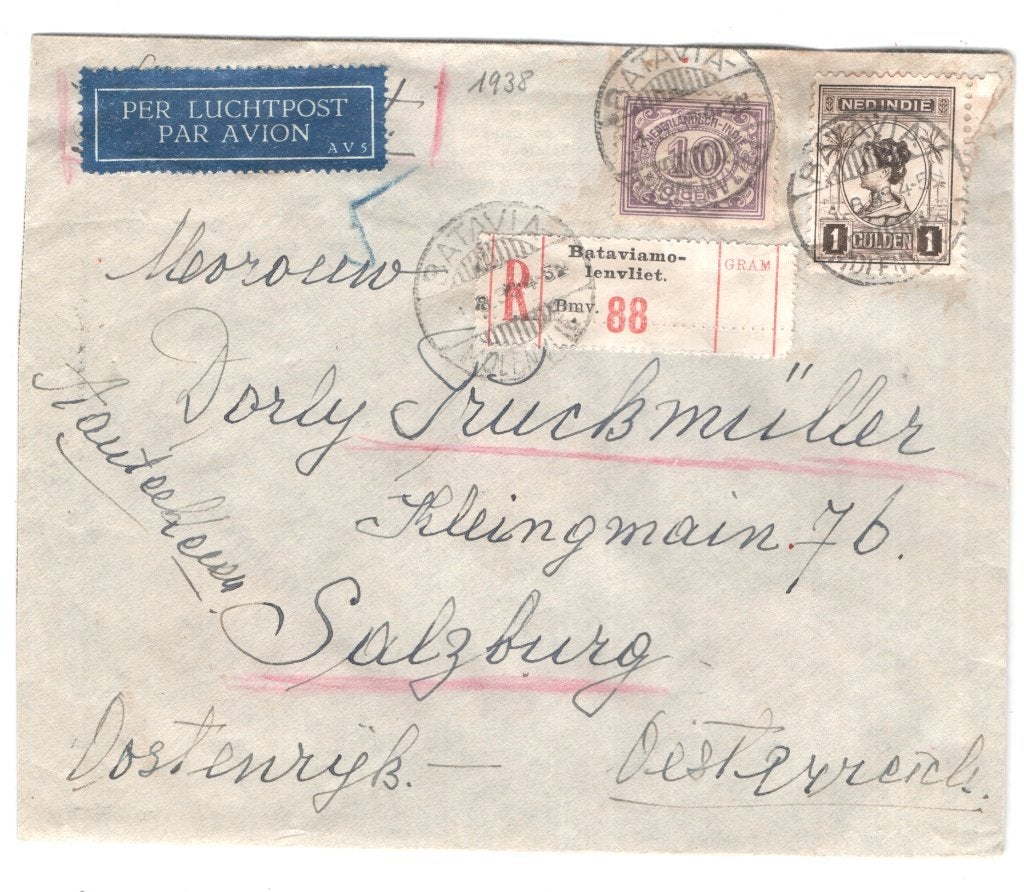 PER LUCHTPOST
PAR AVION
AV5
1938
BATAVIA-
NEDERLANDSCH-INDIË
10
CENT
NED. INDIË
1 GULDEN 1
BATAVIA-
R
Bataviamo-
lenvliet.
Bmv. 88
GRAM
Mevrouw
Dorly Truckmüller
Kleingmain 76.
Aanteekenen.
Salzburg
Oostenrijk. — Oesterreich.